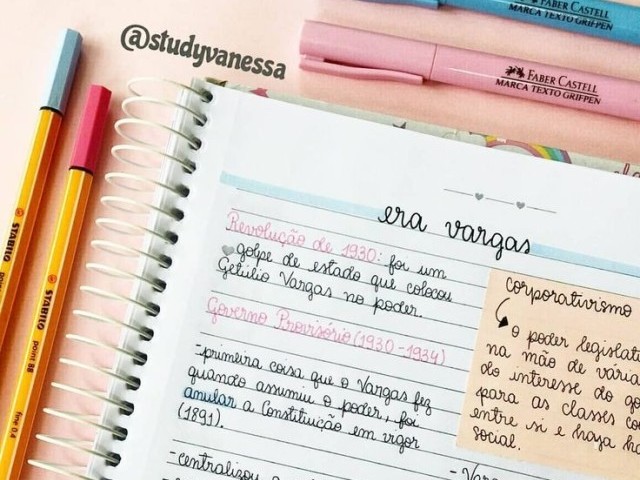 @studyvanessa
FABER CASTELL
MARCA TEXTO GRIFPEN
FABER CASTELL
MARCA TEXTO GRIFPEN
STABILO
STABILO
point 88
fine 0.4
era vargas
Revolução de 1930: foi um
golpe de estado que colocou
Getúlio Vargas no poder.
Governo Provisório (1930-1934)
-primeira coisa que o Vargas fez
quando assumiu o poder, foi
anular a Constituição em vigor
(1891).
-centralizou
corporativismo
o poder legislat
na mão de vária
do interesse do go
para as classes co
entre si e haja ha
social.
- Varg